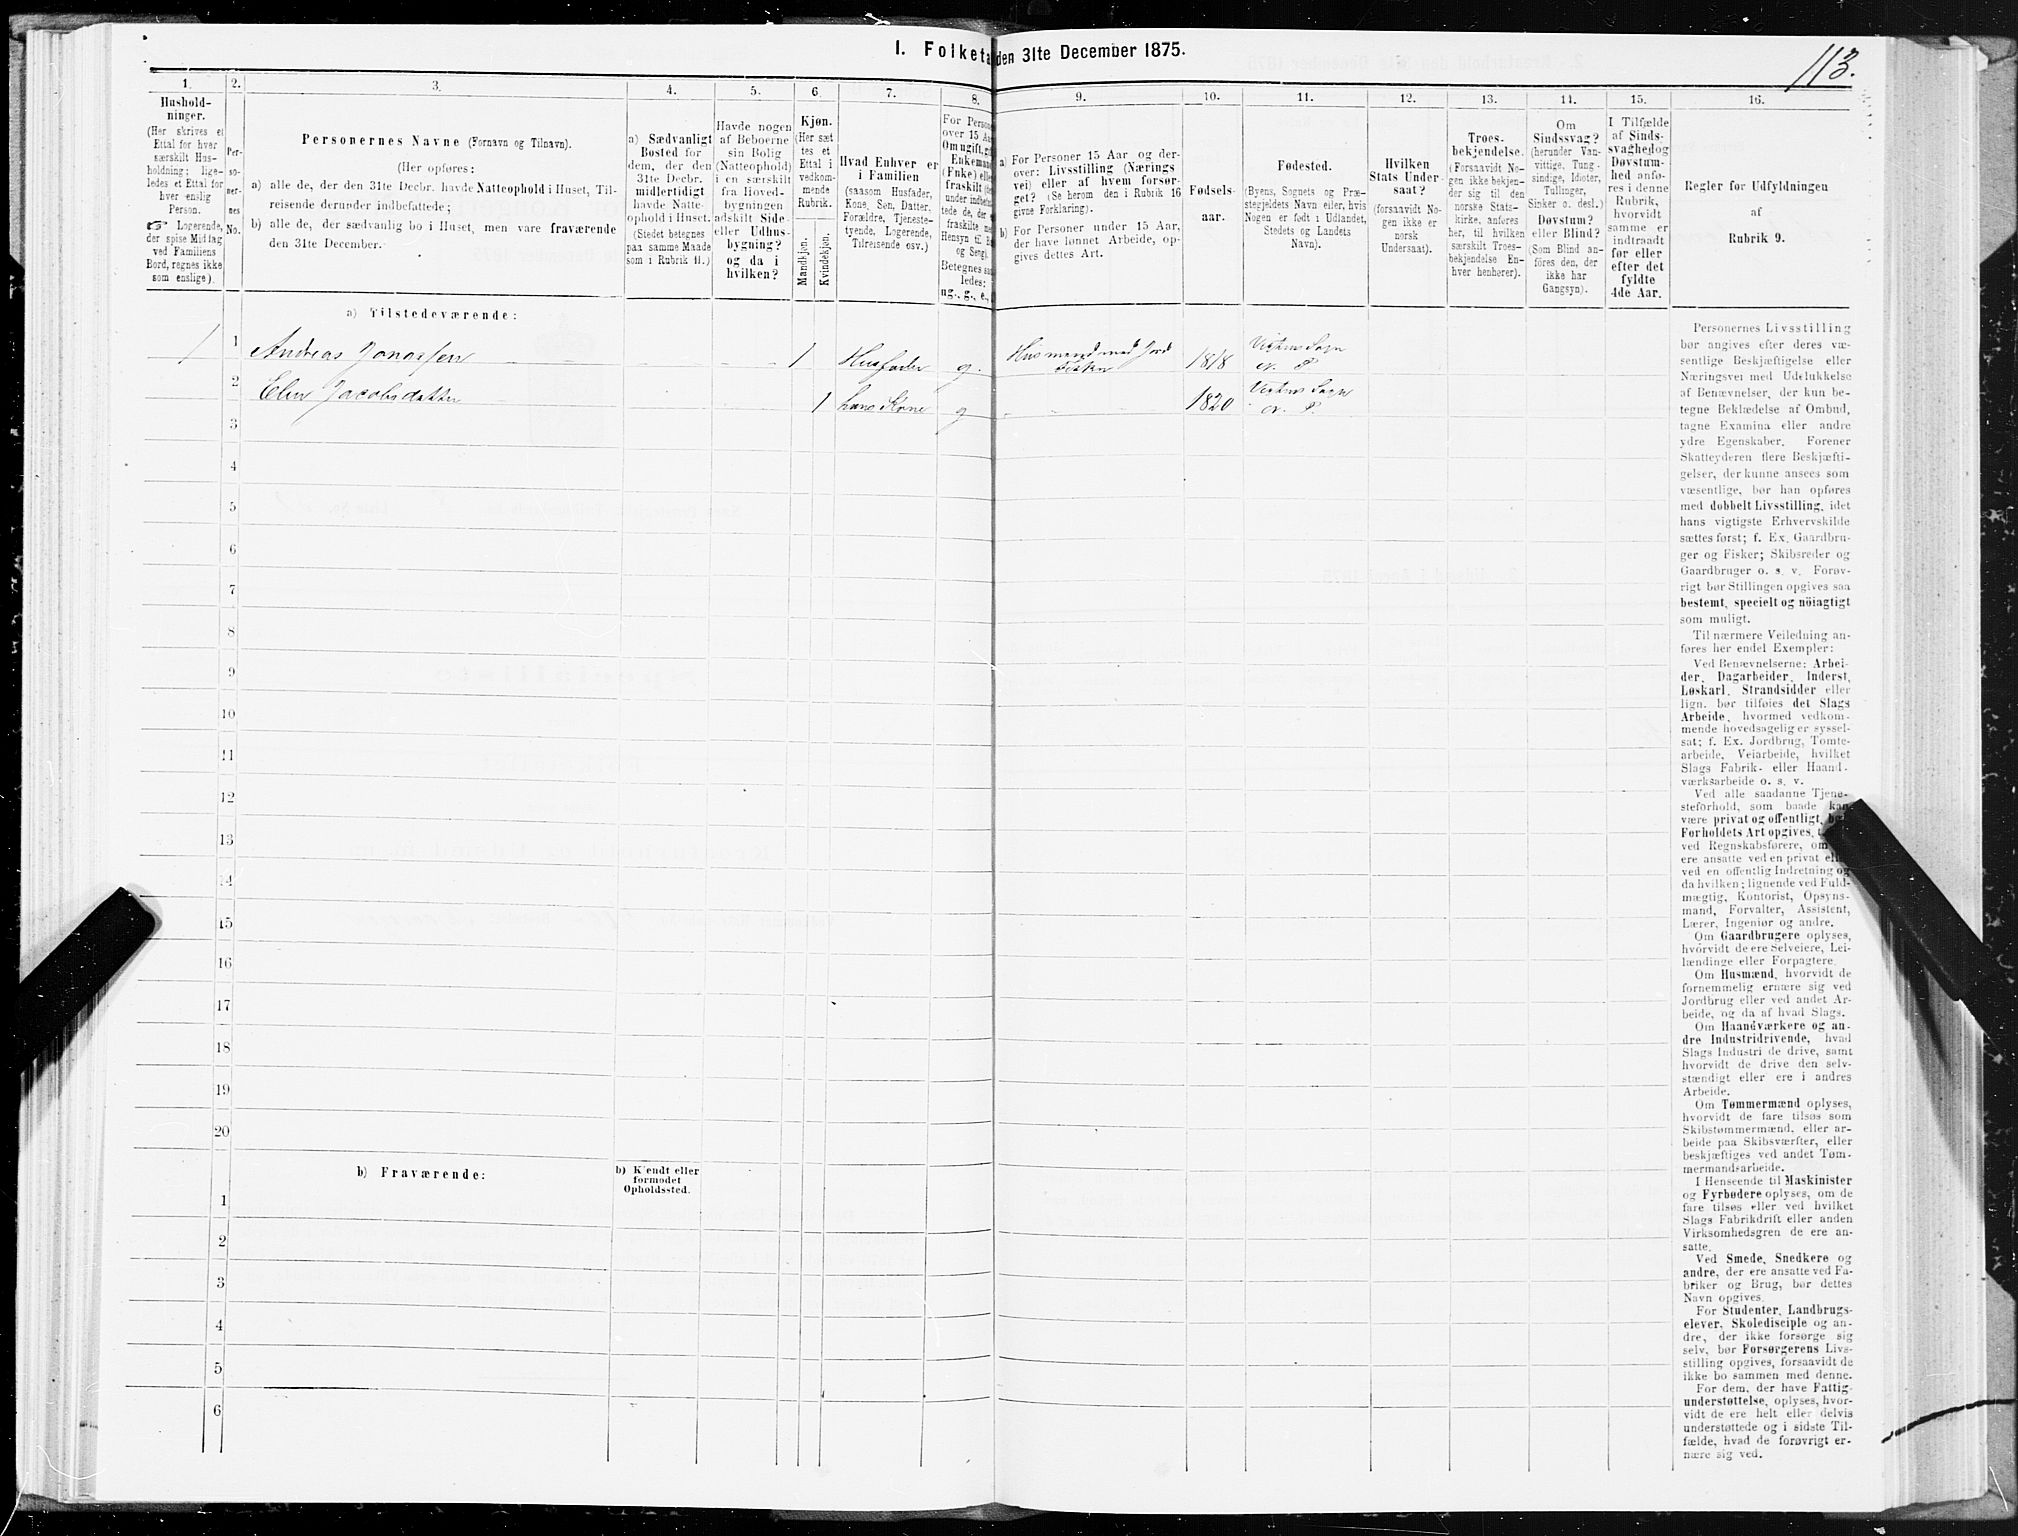 I. Folketa den 31te December 1875.
113.
1.
2.
3.
4.
5.
6.
7.
8.
9.
10.
11.
12.
13.
14.
15.
16.
Hushold-
ninger.
(Her skrives et
Ettal for hver
særskilt Hus-
holdning; lige-
ledes et Ettal for
hver enslig
Person.
☞ Logerende,
der spise Middag
ved Familiens
Bord, regnes ikke
som enslige).
Per-
so-
ner-
nes
No.
Personernes Navne (Fornavn og Tilnavn).
(Her opføres:
a) alle de, der den 31te Decbr. havde Natteophold i Huset, Til-
reisende derunder indbefattede;
b) alle de, der sædvanlig bo i Huset, men vare fraværende
den 31te December.
a) Sædvanligt
Bosted for
dem, der den
31te Decbr.
midlertidigt
havde Natte-
ophold i Huset.
(Stedet betegnes
paa samme Maade
som i Rubrik 11.)
Havde nogen
af Beboerne
sin Bolig
(Natteophold)
i en særskilt
fra Hoved-
bygningen
adskilt Side-
eller Udhus-
bygning?
og da i
hvilken?
Kjøn.
(Her sæt
tes et
Ettal i
vedkom-
mende
Rubrik.
Mandkjøn.
Kvindekjøn.
Hvad Enhver er
i Familien
(saasom Husfader,
Kone, Søn, Datter,
Forældre, Tjeneste-
tyende, Logerende,
Tilreisende osv.)
For Person
over 15 Aa
Om ugift, gi
Enkemand
(Enke) elle
fraskilt (de
under indbefa
tede de, der e
fraskilte me
Hensyn til Bo
og Seng).
Betegnes saa
ledes:
ug., g., e.,
a) For Personer 15 Aar og der-
over: Livsstilling (Nærings
vei) eller af hvem forsør-
get? (Se herom den i Rubrik 16
givne Forklaring).
b) For Personer under 15 Aar,
der have lønnet Arbeide, op-
gives dettes Art.
Fødsels-
aar.
Fødested.
(Byens, Sognets og Præ-
stegjeldets Navn eller, hvis
Nogen er født i Udlandet,
Stedets og Landets
Navn).
Hvilken
Stats Under-
saat?
(forsaavidt No-
gen ikke er
norsk
Undersaat).
Troes-
bekjendelse.
(Forsaavidt No-
gen ikke bekjen-
der sig til den
norske Stats-
kirke, anføres
her, til hvilken
særskilt Troes-
bekjendelse En-
hver henhører).
Om
Sindssvag?
(herunder Van-
vittige, Tung-
sindige, Idioter,
Tullinger,
Sinker o. desl.)
Døvstum?
eller Blind?
(Som Blind an-
føres den, der
ikke har
Gangsyn).
I Tilfælde
af Sinds-
svaghed og
Døvstum-
hed anfø-
res i denne
Rubrik,
hvorvidt
samme er
indtraadt
før eller
efter det
fyldte
4de Aar.
Regler før Udfyldningen
af
Rubrik 9.
a) Tilstedeværende:
1
1 Andreas Jonassen 1 Husfader g. Husmand med Jord
Fisker 1818
2 Elen Jacobsdatter 1 hans Kone g 1820
3
4
5
6
7
8
9
10
11
12
13
14
15
16
17
18
19
20
b) Fraværende:
b) Kjendt eller
formodet
Opholdssted.
1
2
3
4
5
6
Personernes Livsstilling
bør angives efter deres væ-
sentlige Beskjæftigelse eller
Næringsvei med Udelukkelse
af Benævnelser, der kun be-
tegne Beklædelse af Ombud,
tagne Examina eller andre
ydre Egenskaber. Forener
Skatteyderen flere Beskjæfti-
gelser, der kunne ansees som
væsentlige, bør han opføres
med dobbelt Livsstilling, idet
hans vigtigste Erhvervskilde
sættes først; f. Ex. Gaardbru-
ger og Fisker; Skibsreder og
Gaardbruger o. s. v. Forøv-
rigt bør Stillingen opgives saa
bestemt, specielt og nøiagtigt
som muligt.
Til nærmere Veiledning an-
føres her endel Exempler:
Ved Benævnelserne: Arbei-
der, Dagarbeider, Inderst,
Løskarl, Strandsidder eller
lign. bør tilføies det Slags
Arbeide, hvormed vedkom-
mende hovedsagelig er syssel-
sat; f. Ex. Jordbrug, Tomte-
arbeide, Veiarbeide, hvilket
Slags Fabrik- eller Haand-
værksarbeide o. s. v.
Ved alle saadanne Tjene-
steforhold, som baade kan
være privat og offentligt, bør
Forholdets Art opgives,
ved Regnskabsførere, om
ere ansatte ved en privat eller
ved en offentlig Indretning og
da hvilken; lignende ved Fuld-
mægtig, Kontorist, Opsyns-
mand, Forvalter, Assistent,
Lærer, Ingeniør og andre.
Om Gaardbrugere oplyses,
hvorvidt de ere Selveiere, Lei-
lændinge eller Forpagtere.
Om Husmænd, hvorvidt de
fornemmelig ernære sig ved
Jordbrug eller ved andet Ar-
beide, og da af hvad Slags.
Om Haandværkere og an-
dre Industridrivende, hvad
Slags Industri de drive, samt
hvorvidt de drive den selv-
stændigt eller ere i andres
Arbeide.
Om Tømmermænd oplyses,
hvorvidt de fare tilsøs som
Skibstømmermænd, eller ar-
beide paa Skibsværfter, eller
beskjæftiges ved andet Tøm-
mermandsarbeide.
I Henseende til Maskinister
og Fyrbødere oplyses, om de
fare tilsøs eller ved hvilket
Slags Fabrikdrift eller anden
Virksomhedsgren de ere an-
satte.
Ved Smede, Snedkere og
andre, der ere ansatte ved Fa-
briker og Brug, bør dettes
Navn opgives.
For Studenter, Landbrugs-
elever, Skoledisciple og an-
dre, der ikke forsørge sig
selv, bør Forsørgerens Livs-
stilling opgives, forsaavidt de
ikke bo sammen med denne.
For dem, der have Fattig-
understøttelse, oplyses, hvor-
vidt de ere helt eller delvis
understøttede og i sidste Til-
fælde, hvad de forøvrigt er-
nære sig ved.